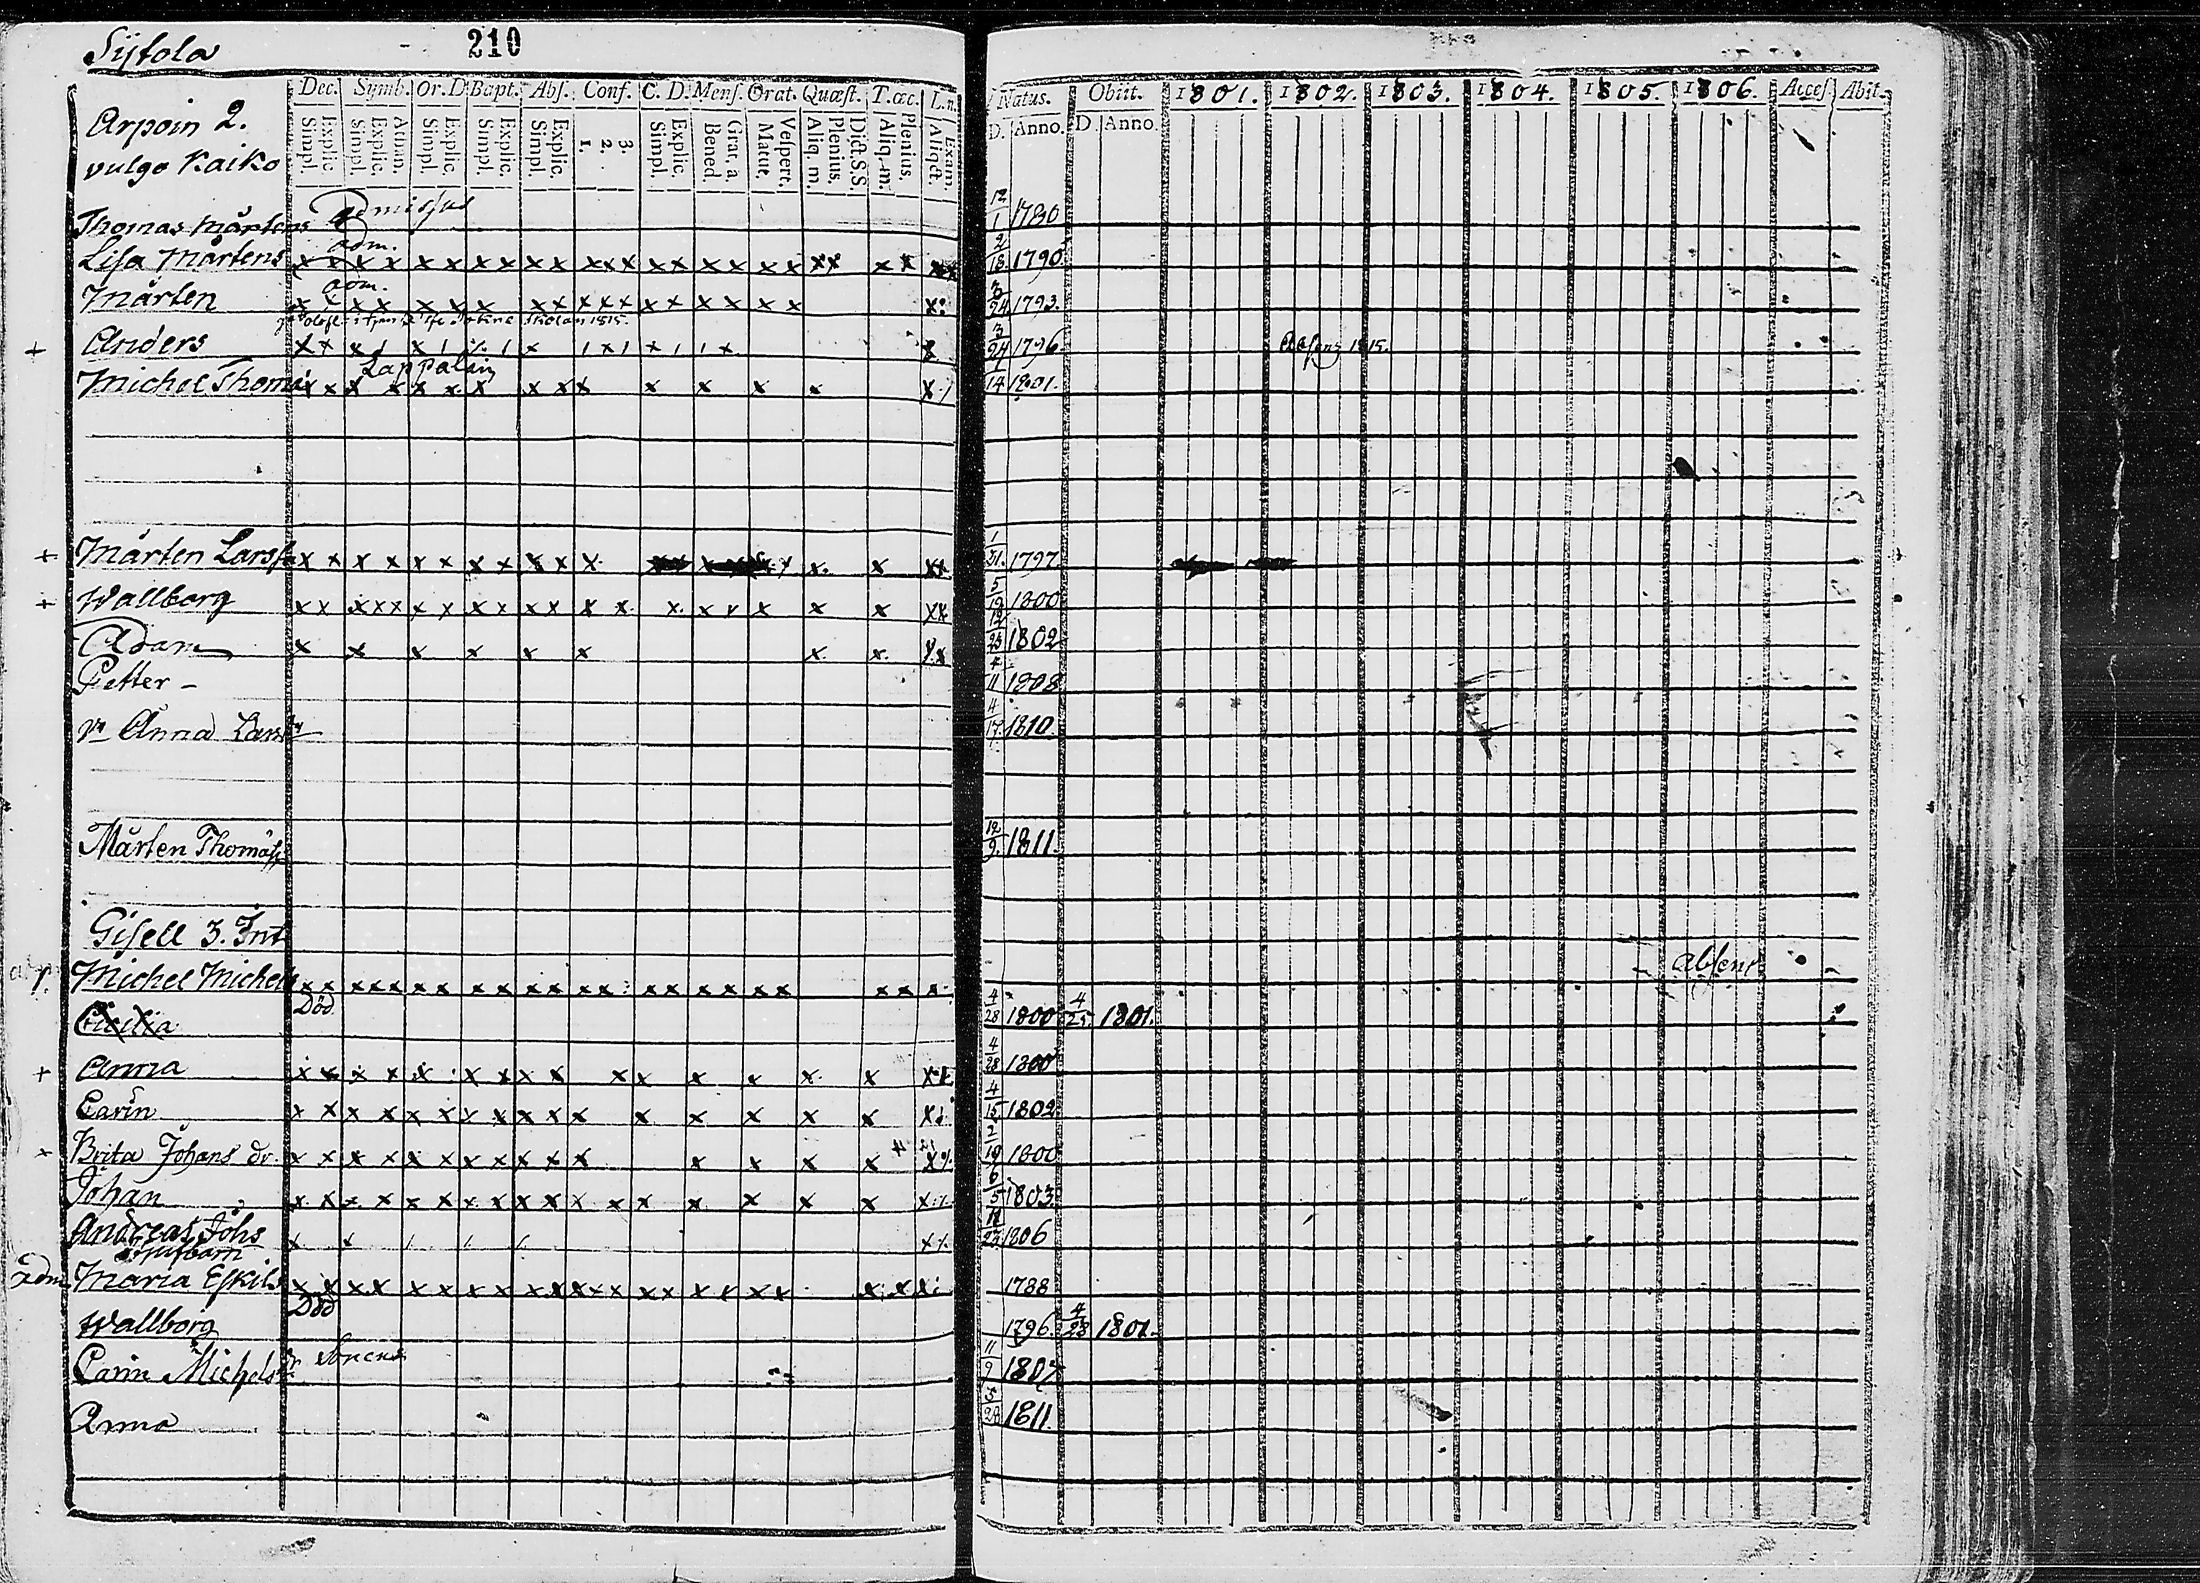 Sijtola
210
Dec. Symb. Or. D. Bapt. Abs. Conf. C. D. Mens. Orat. Quæst. T. œc. L.n. Natus. Obiit. 1801. 1802. 1803. 1804. 1805. 1806. Acces. Abit.
Simpl. Explic. Simpl. Explic. Athan. Simpl. Explic. Simpl. Explic. Simpl. Explic. 1. 2. 3. Simpl. Explic. Bened. Grat. a. Matut. Vespert. Aliq. m. Plenius. Dict. S.S. Aliq. m. Plenius. Aliqct. Exam. D. Anno. D. Anno.
Arpoin 2.
vulgo Kaiko
Thomas Mårtens Admissus 12/1 1780
adm.
Lisa Mårtens x x x x x x x x x x x x x x x x x x x x x x x 2/18 1790
adm.
Mårten x x x x x x x x x x x x x x x x x x 3/24 1793.
+ Anders x x x 1 x 1 1 x 1 x 1 x 1 1 x x 3/24 1796 1815.
Lappalain
Michel Thomas x x x x x x x x x x x x x x 14 1801.
+ Mårten Larss x x x x x x x x x x x x x x x 1/31. 1797
+ Wallborg x x x x x x x x x x x x x x x x x x x x x 5/19 1800
Adam x x x x x x x x x 12/23 1802
Petter - 4/11 1808
Anna Lars 4/17 1810
Mårten Thomass 12/9. 1811.
Gisell 3. Int
Michel Michels x x x x x x x x x x x x x x x x x x x x x x absent
Död
Cicilia 4/28 1800 4/25. 1801.
+ Anna x x x x x x x x x x x x x x x x 4/28 1800
Carin x x x x x x x x x x x x x x x x 4/15 1802
x Brita Johans dr. x x x x x x x x x x x x x x x x 2/19 1800
Johan x x x x x x x x x x x x x x x x x 6/5 1803.
Andreas Johs x x 1806
adm Maria Eskils x x x x x x x x x x x x x x x x x x x x x x 1788
Död
Wallborg 1796. 4/28 1801.
Carin Michels dr 11/9 1807
Anna 1811.